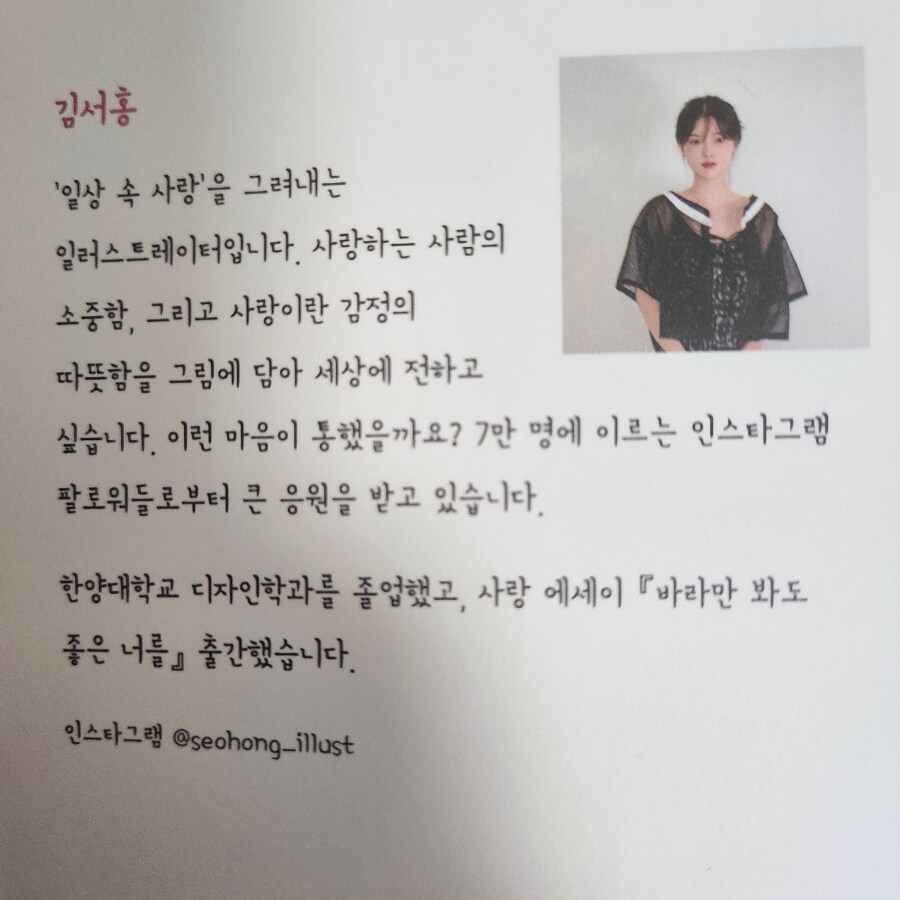 김서홍
'일상 속 사랑'을 그려내는
일러스트레이터입니다. 사랑하는 사람의
소중함, 그리고 사랑이란 감정의
따뜻함을 그림에 담아 세상에 전하고
싶습니다. 이런 마음이 통했을까요? 7만 명에 이르는 인스타그램
팔로워들로부터 큰 응원을 받고 있습니다.
한양대학교 디자인학과를 졸업했고, 사랑 에세이 『바라만 봐도
좋은 너를』 출간했습니다.
인스타그램 @seohong_illust